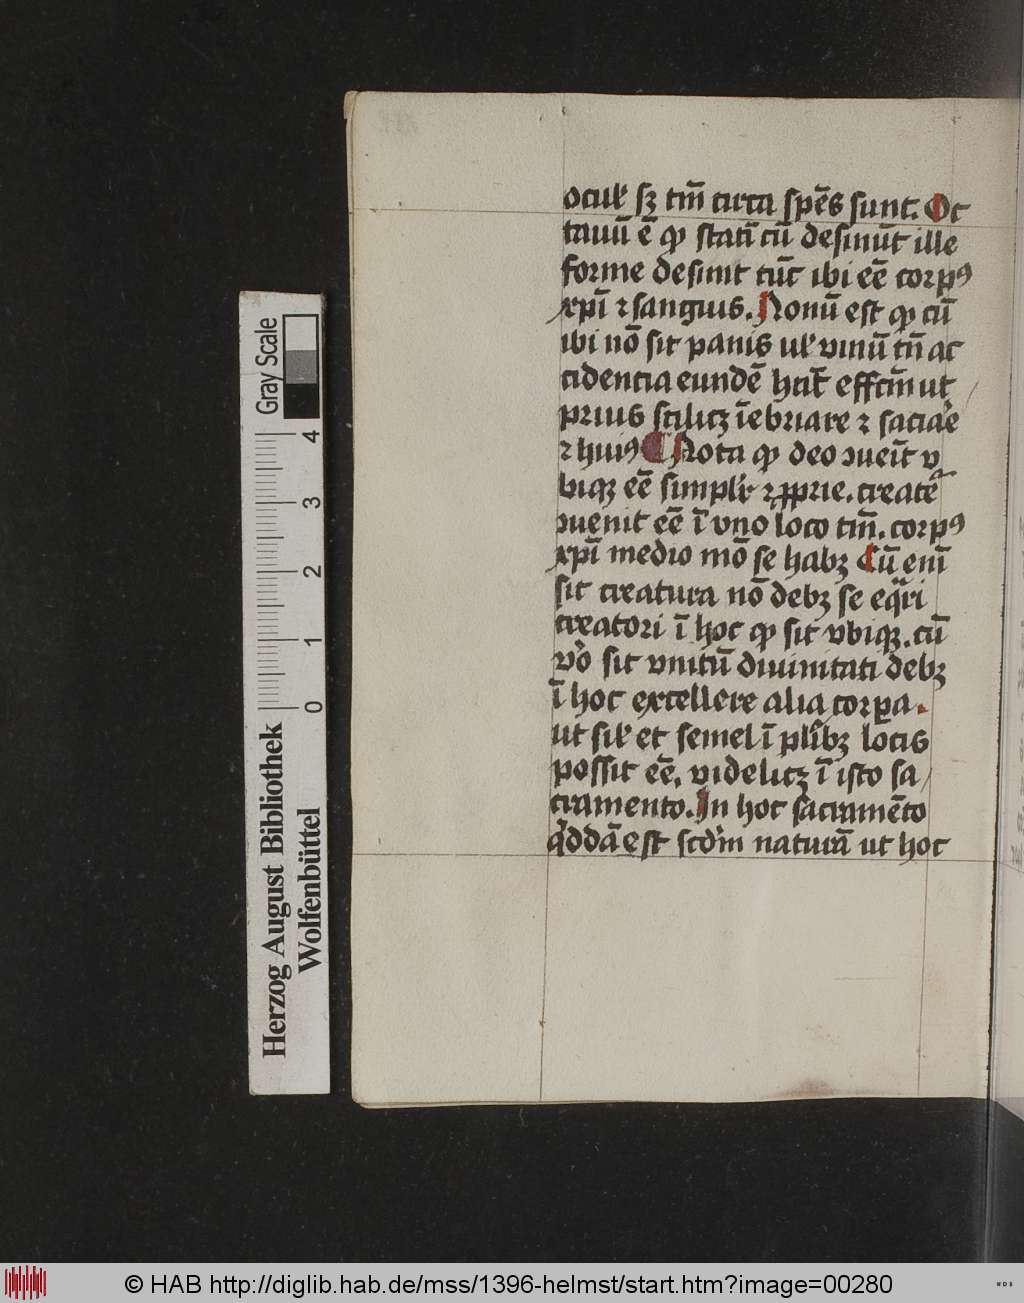 oculꝭ sꝫ tm̄ circa spēs sunt. Oc
tauū ē ꝙ statī cū desinūt ille
forme desinit tūc ibi eē corpꝰ
xp̄i ⁊ sanguis. Nonū est ꝙ cū
ibi nō sit panis ul̛ vinū tn̄ ac
cidencia eundē hn̄t effc̄m ut
prius scilicꝫ īebriare ⁊ saciae
⁊ huiꝰ ¶ Nota ꝙ deo ꝯueit v
biqꝫ eē simplr̛ ⁊ ꝓprie. creatē
ꝯuenit eē ī vno loco tm̄. corpꝰ
xp̄i medio mō se habꝫ Cū enī
sit creatura nō debꝫ se eqͣri
creatori ī hoc ꝙ sit vbiqꝫ. cū
v̊o sit vnitū diuinitati debꝫ
ī hoc excellere alia corꝑa.
ut sil̛ et semel ī pl̛ibꝫ locis
possit eē. videlicꝫ ī isto sa
cramento. In hoc sacramēto
qͥddā est scd̄m naturā ut hoc
Gray Scale
4
3
2
1
0
Herzog August Bibliothek
Wolfenbüttel
© HAB http://diglib.hab.de/mss/1396-helmst/start.htm?image=00280